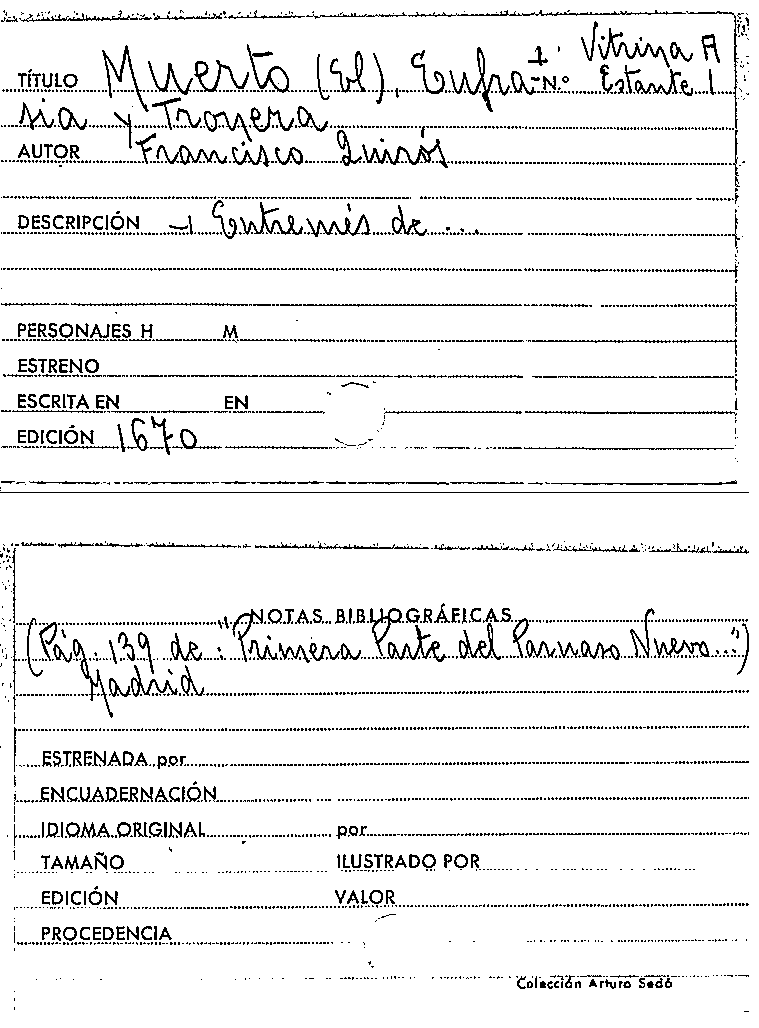 1 Vitrina A
TÍTULO Muerto (El), Eufra- N.º Estante 1
sia y Tronera
AUTOR Francisco Quirós
DESCRIPCIÓN Entremés de ...
PERSONAJES H M
ESTRENO
ESCRITA EN EN
EDICIÓN 1670
NOTAS BIBLIOGRÁFICAS
(Pág. 139 de: "Primera Parte del Parnaso Nuevo...")
Madrid
ESTRENADA por
ENCUADERNACIÓN
IDIOMA ORIGINAL por
TAMAÑO ILUSTRADO POR
EDICIÓN VALOR
PROCEDENCIA
Colección Arturo Sedó